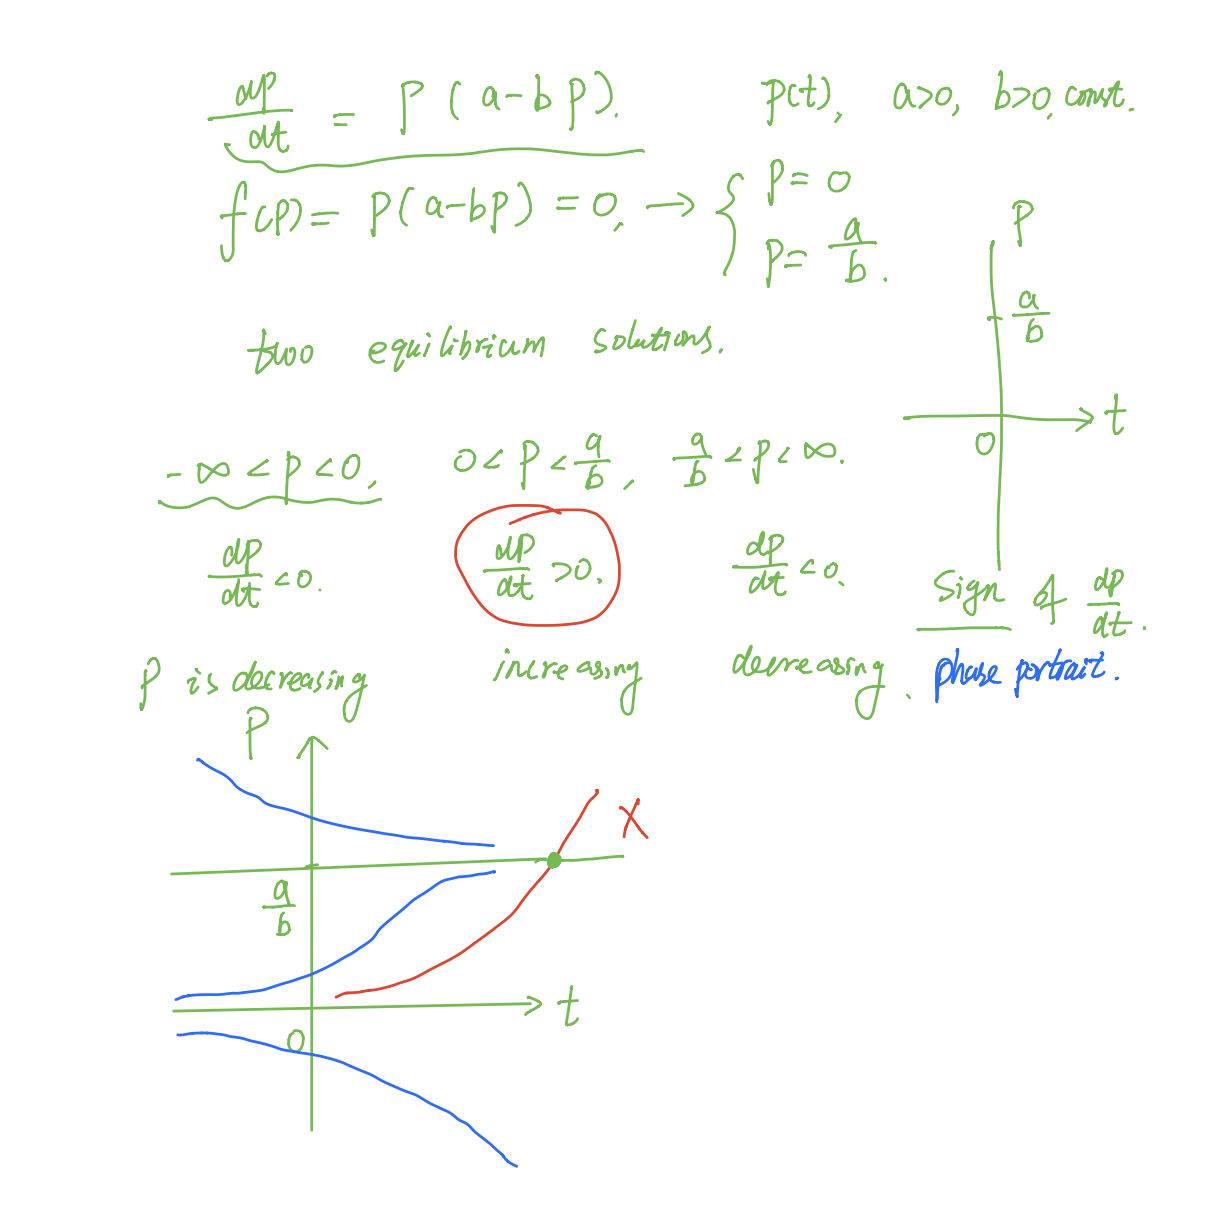 dP/dt = P(a-bP). P(t), a>0, b>0, const.
f(P) = P(a-bP) = 0, → { P = 0
P = a/b.
P
a/b
two equilibrium solutions.
t
0
-∞ < P < 0, 0 < P < a/b, a/b < P < ∞.
dP/dt < 0. dP/dt > 0. dP/dt < 0.
Sign of dP/dt.
P is decreasing increasing decreasing. phase portrait.
P
X
a/b
t
0